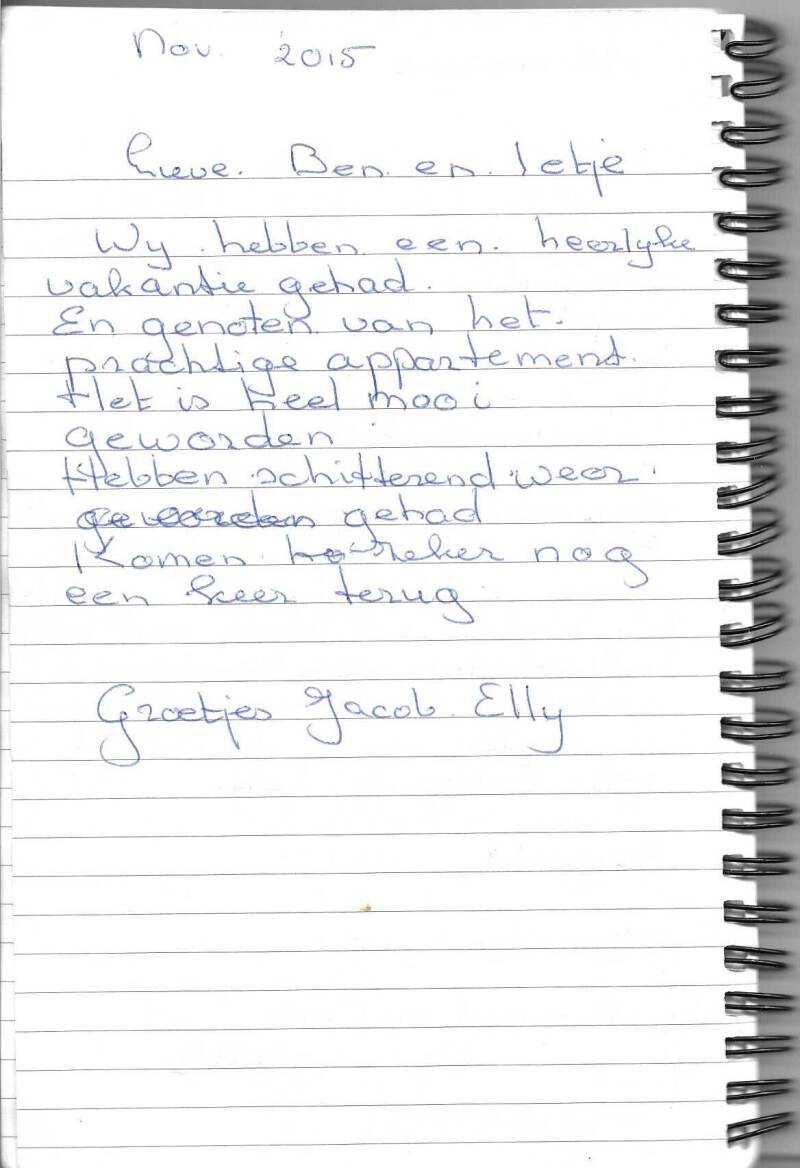 Nov. 2015
Lieve. Ben. en. Ietje
Wy. hebben een. heerlyke
vakantie gehad.
En genoten van het.
prachtige appartement.
Het is heel mooi
geworden
Hebben schitterend weer.
geworden gehad
Komen zeker nog
een keer terug
Groetjes Jacob. Elly